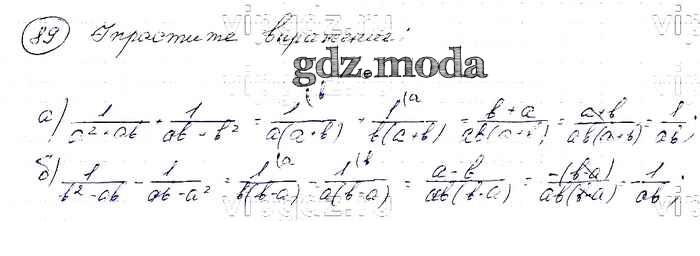 89 Упростите выражения:
gdz.moda
а) 1/(a²+ab) + 1/(ab+b²) = 1^(b/(a(a+b)) + 1^(a/(b(a+b)) = (b+a)/(ab(a+b)) = (a+b)/(ab(a+b)) = 1/(ab);
б) 1/(b²-ab) - 1/(ab-a²) = 1^(a/(b(b-a)) - 1^(b/(a(b-a)) = (a-b)/(ab(b-a)) = -(b-a)/(ab(b-a)) = -1/(ab);